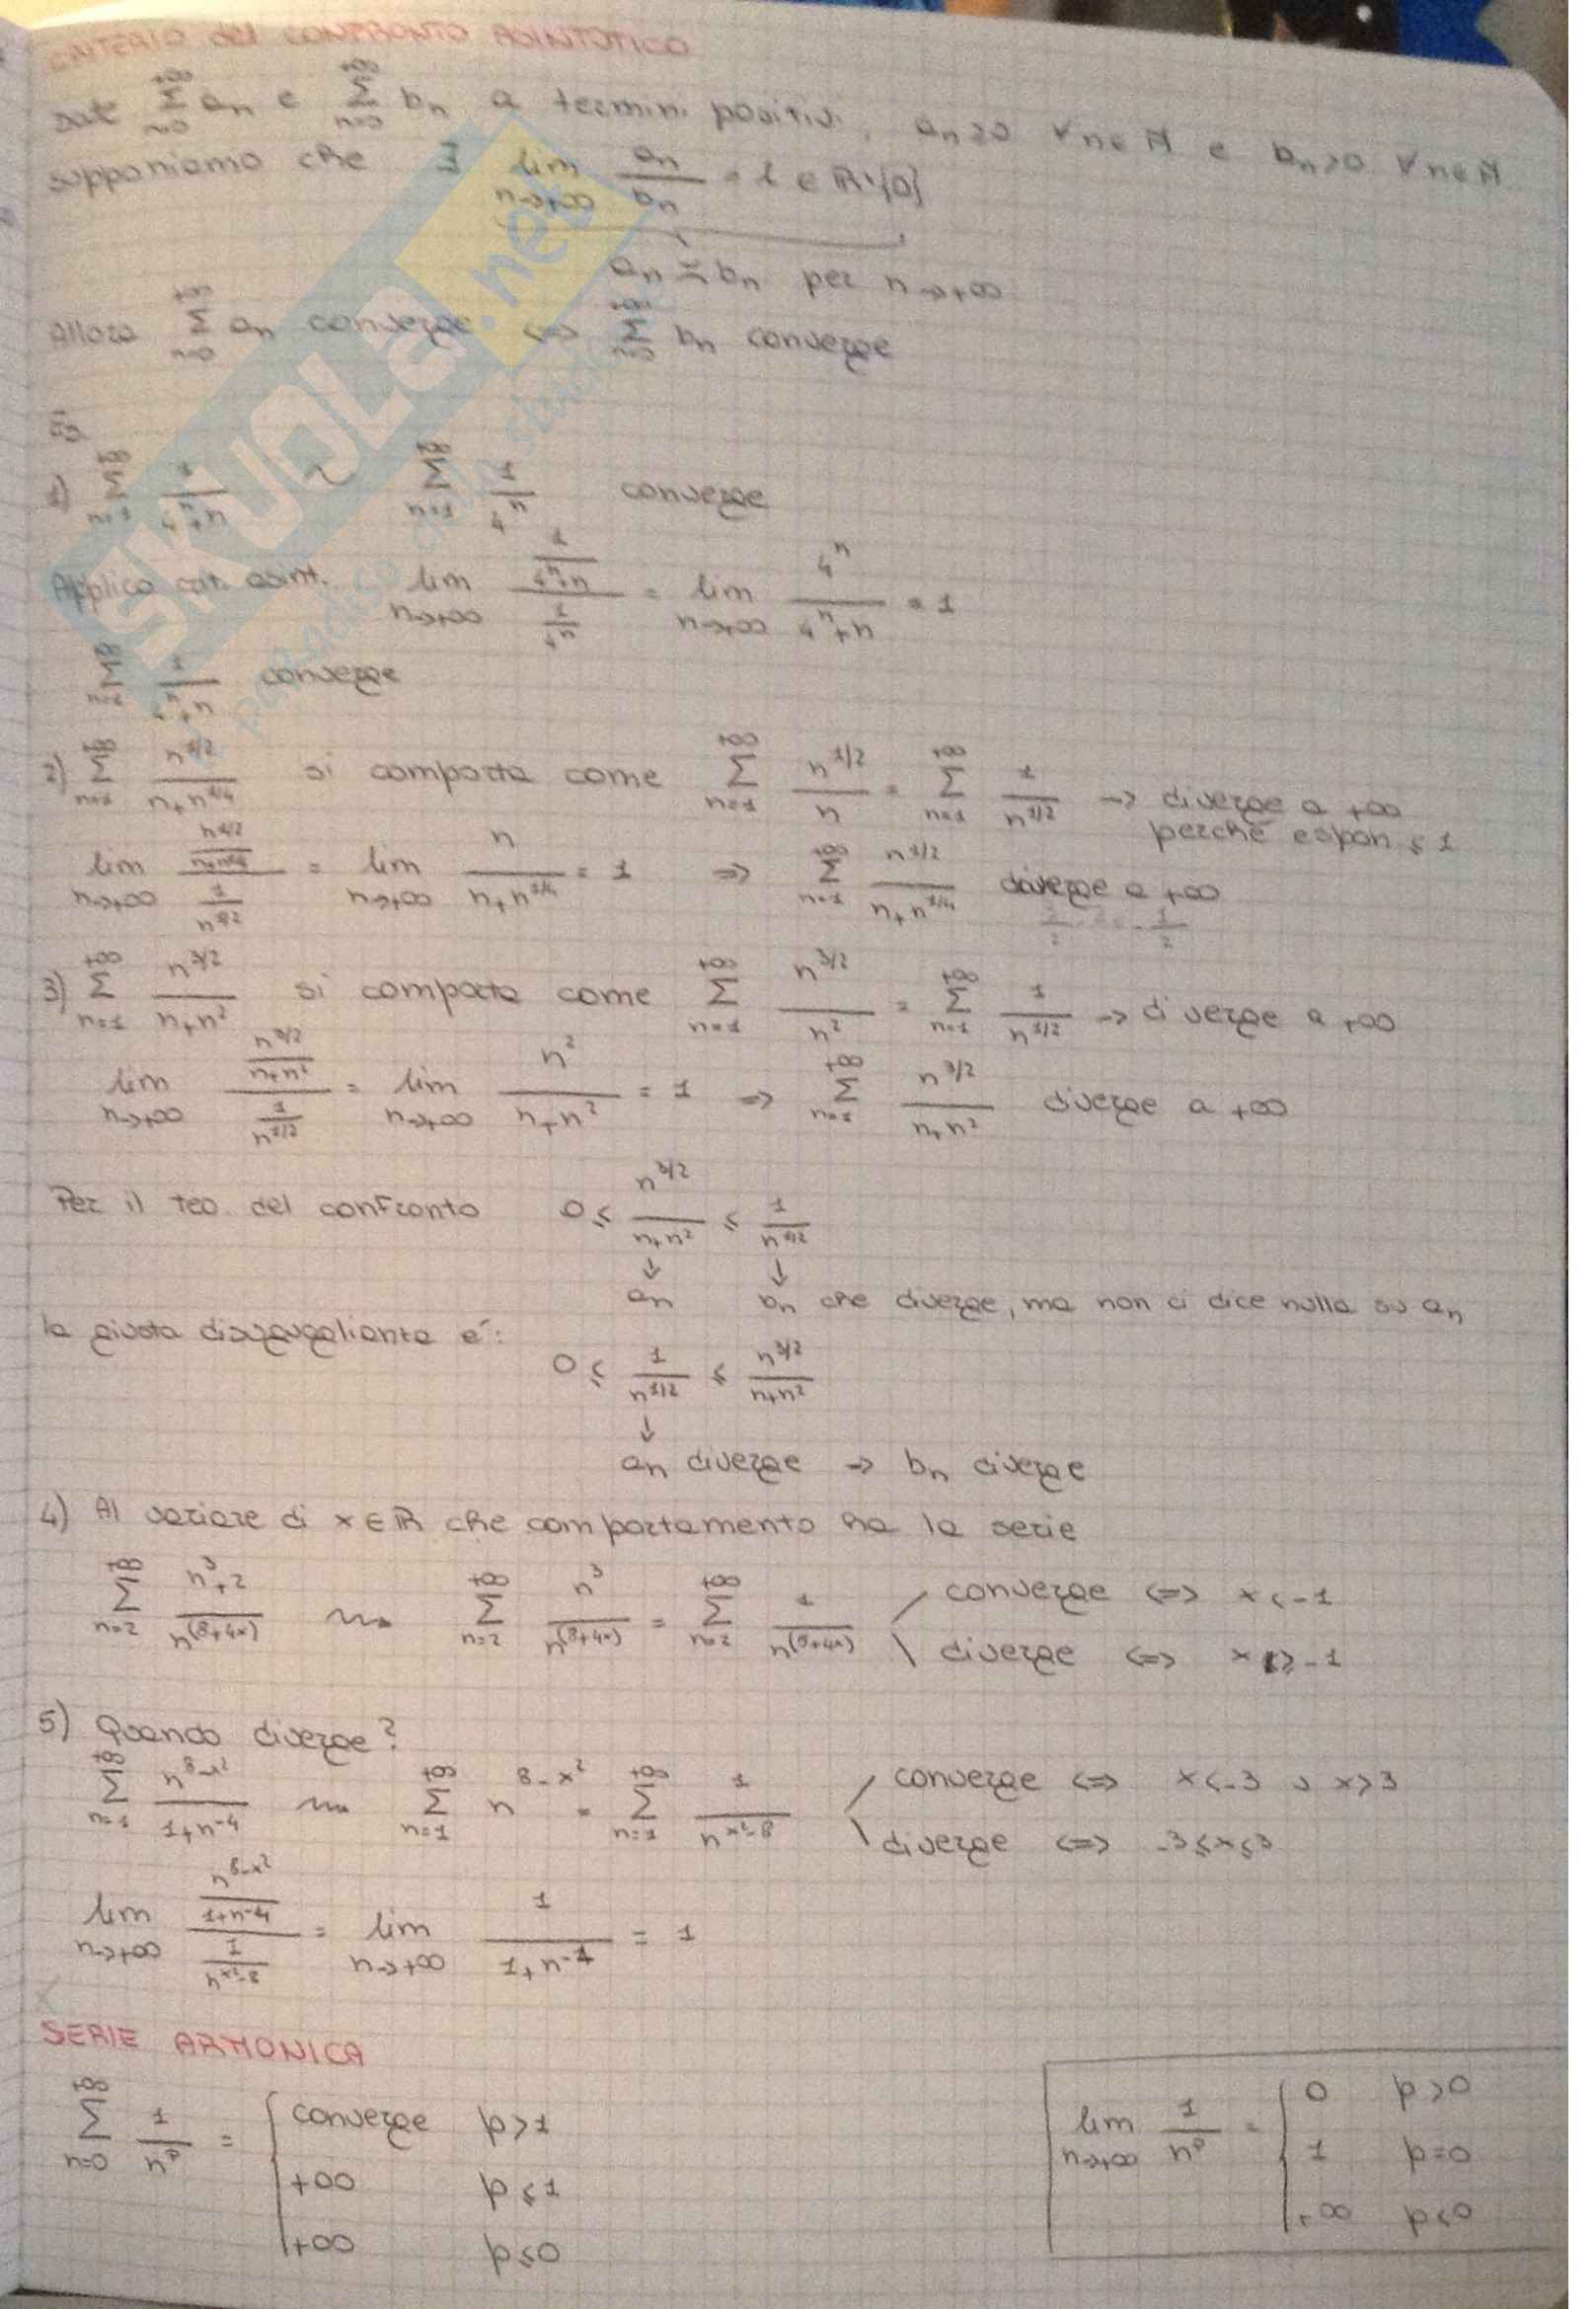 CRITERIO del CONFRONTO ASINTOTICO
Date Σ_{n=0}^{+∞} a_n e Σ_{n=0}^{+∞} b_n a termini positivi, a_n≥0 ∀n∈N e b_n>0 ∀n∈N
supponiamo che ∃ lim_{n→+∞} a_n/b_n = l ∈ R\{0}
a_n ≍ b_n per n→+∞
Allora Σ_{n=0}^{+∞} a_n converge <=> Σ_{n=0}^{+∞} b_n converge
Es.
1) Σ_{n=1}^{+∞} 1/(4^n+n) ~ Σ_{n=1}^{+∞} 1/4^n converge
Applico crit. asint. lim_{n→+∞} (1/(4^n+n))/(1/4^n) = lim_{n→+∞} 4^n/(4^n+n) = 1
Σ_{n=1}^{+∞} 1/(4^n+n) converge
2) Σ_{n=1}^{+∞} n^{1/2}/(n+n^{1/4}) si comporta come Σ_{n=1}^{+∞} n^{1/2}/n = Σ_{n=1}^{+∞} 1/n^{1/2} → diverge a +∞
perché espon ≤ 1
lim_{n→+∞} (n^{1/2}/(n+n^{1/4}))/(1/n^{1/2}) = lim_{n→+∞} n/(n+n^{1/4}) = 1 => Σ_{n=1}^{+∞} n^{1/2}/(n+n^{1/4}) diverge a +∞
3/2 - 2 = -1/2
3) Σ_{n=1}^{+∞} n^{3/2}/(n+n^2) si comporta come Σ_{n=1}^{+∞} n^{3/2}/n^2 = Σ_{n=1}^{+∞} 1/n^{1/2} → diverge a +∞
lim_{n→+∞} (n^{3/2}/(n+n^2))/(1/n^{1/2}) = lim_{n→+∞} n^2/(n+n^2) = 1 => Σ_{n=1}^{+∞} n^{3/2}/(n+n^2) diverge a +∞
Per il teo. del confronto 0 ≤ n^{3/2}/(n+n^2) ≤ 1/n^{1/2}
↓ ↓
a_n b_n che diverge, ma non ci dice nulla su a_n
la giusta disuguaglianza è:
0 ≤ 1/n^{1/2} ≤ n^{3/2}/(n+n^2)
↓
a_n diverge → b_n diverge
4) Al variare di x∈R che comportamento ha la serie
Σ_{n=2}^{+∞} (n^3+2)/n^{(8+4x)} ~ Σ_{n=2}^{+∞} n^3/n^{(8+4x)} = Σ_{n=2}^{+∞} 1/n^{(5+4x)} / converge <=> x<-1
\ diverge <=> x≥-1
5) Quando diverge?
Σ_{n=1}^{+∞} n^{8-x^2}/(1+n^{-4}) ~ Σ_{n=1}^{+∞} n^{8-x^2} = Σ_{n=1}^{+∞} 1/n^{x^2-8} / converge <=> x<-3 ∪ x>3
\ diverge <=> -3≤x≤3
lim_{n→+∞} (n^{8-x^2}/(1+n^{-4}))/(1/n^{x^2-8}) = lim_{n→+∞} 1/(1+n^{-4}) = 1
SERIE ARMONICA
Σ_{n=0}^{+∞} 1/n^p = { converge p>1
+∞ p≤1
+∞ p≤0
lim_{n→+∞} 1/n^p = { 0 p>0
1 p=0
+∞ p<0
SKUOLA.net